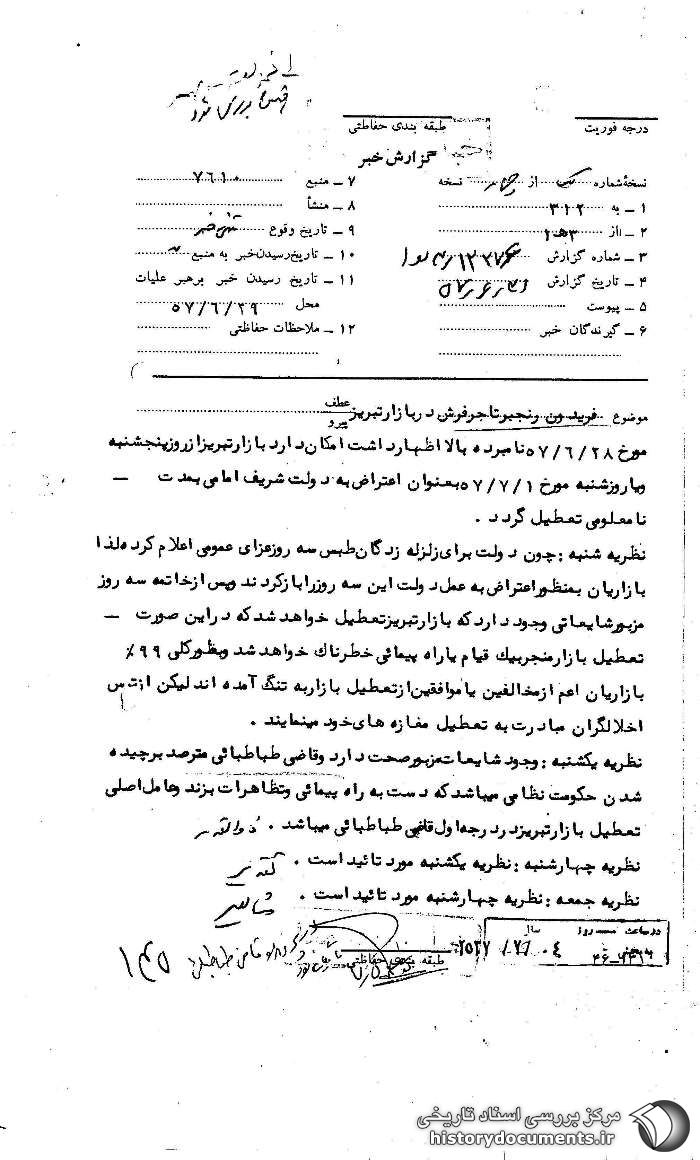 درجه فوریت
طبقه بندی حفاظتی
گزارش خبر
نسخهٔ شماره یک از نسخه
۱ ـ به ۳۱۲
۲ ـ از ۳ ه‍ ۱
۳ ـ شماره گزارش
۴ ـ تاریخ گزارش
۵ ـ پیوست
۶ ـ گیرندگان خبر
۷ ـ منبع ۷۶۱۰
۸ ـ منشأ
۹ ـ تاریخ وقوع
۱۰ ـ تاریخ رسیدن خبر به منبع
۱۱ ـ تاریخ رسیدن خبر برهبر عملیات
محل ۵۷/۶/۲۹
۱۲ ـ ملاحظات حفاظتی
موضوع فریدون رنجبر تاجر فرش در بازار تبریز عطف پیرو
مورخ ۵۷/۶/۲۸ نامبرده بالا اظهار داشت امکان دارد بازار تبریز از روز پنجشنبه
ویا روز شنبه مورخ ۵۷/۷/۱ بعنوان اعتراض به دولت شریف امامی بمدت ـ
نامعلومی تعطیل گردد .
نظریه شنبه : چون دولت برای زلزله زدگان طبس سه روز عزای عمومی اعلام کرده لذا
بازاریان بمنظور اعتراض به عمل دولت این سه روز را باز کردند وپس از خاتمه سه روز
مزبور شایعاتی وجود دارد که بازار تبریز تعطیل خواهد شد که در این صورت ـ
تعطیل بازار منجر بیک قیام یا راه پیمائی خطرناک خواهد شد وبطور کلی ۹۹٪
بازاریان اعم از مخالفین یا موافقین از تعطیل بازار به تنگ آمده اند لیکن از ترس
اخلالگران مبادرت به تعطیل مغازه های خود مینمایند .
نظریه یکشنبه : وجود شایعات مزبور صحت دارد وقاضی طباطبائی مترصد برچیده
شدن حکومت نظامی میباشد که دست به راه پیمائی وتظاهرات بزند وعامل اصلی
تعطیل بازار تبریز در درجه اول قاضی طباطبائی میباشد .
نظریه چهارشنبه : نظریه یکشنبه مورد تائید است .
نظریه جمعه : نظریه چهارشنبه مورد تائید است .
طبقه بندی حفاظتی
ساعت روز سال
۲۵۳۷
مرکز بررسی اسناد تاریخی
historydocuments.ir